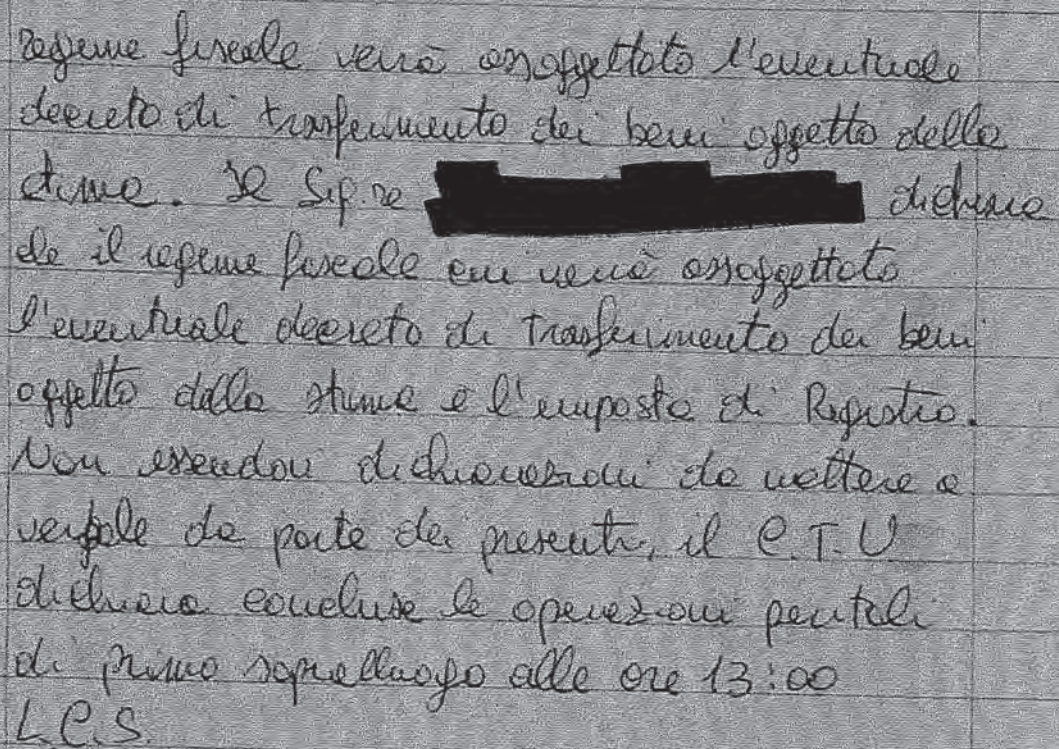 regime fiscale verrà assoggettato l'eventuale
decreto di trasferimento dei beni oggetto della
stima. Il Sig.re dichiara
che il regime fiscale cui verrà assoggettato
l'eventuale decreto di trasferimento dei beni
oggetto della stima è l'imposta di Registro.
Non essendovi dichiarazioni da mettere a
verbale da parte dei presenti, il C.T.U
dichiara concluse le operazioni peritali
di primo sopralluogo alle ore 13:00
L.C.S.